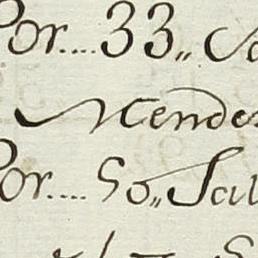 Por.... 33,, Sa
Mendes
Por.... 50,, Sal